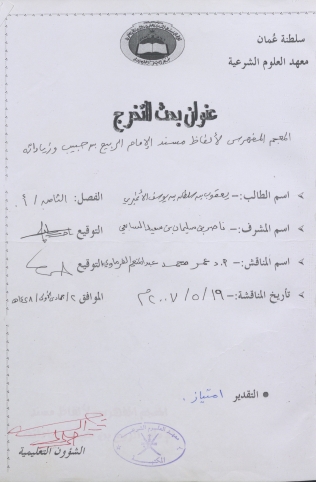 سلطنة عُمان
معهد العلوم الشرعية
عنوان بحث التخرج
المعجم المفهرس لألفاظ مسند الإمام الربيع بن حبيب وزياداته
> اسم الطالب:- يعقوب بن سلطان بن يوسف الفصل: الثامن / أ.
> اسم المشرف:- ناصر بن سليمان بن سعيد السابعي التوقيع
> اسم المناقش:- أ.د عمر محمد عبدالمنعم الفرماوي التوقيع
> تاريخ المناقشة:- ١٩ / ٥ / ٢٠٠٧م الموافق ٢ / جمادى الأولى / ١٤٢٨هـ
• التقدير امتياز.
الشؤون التعليمية